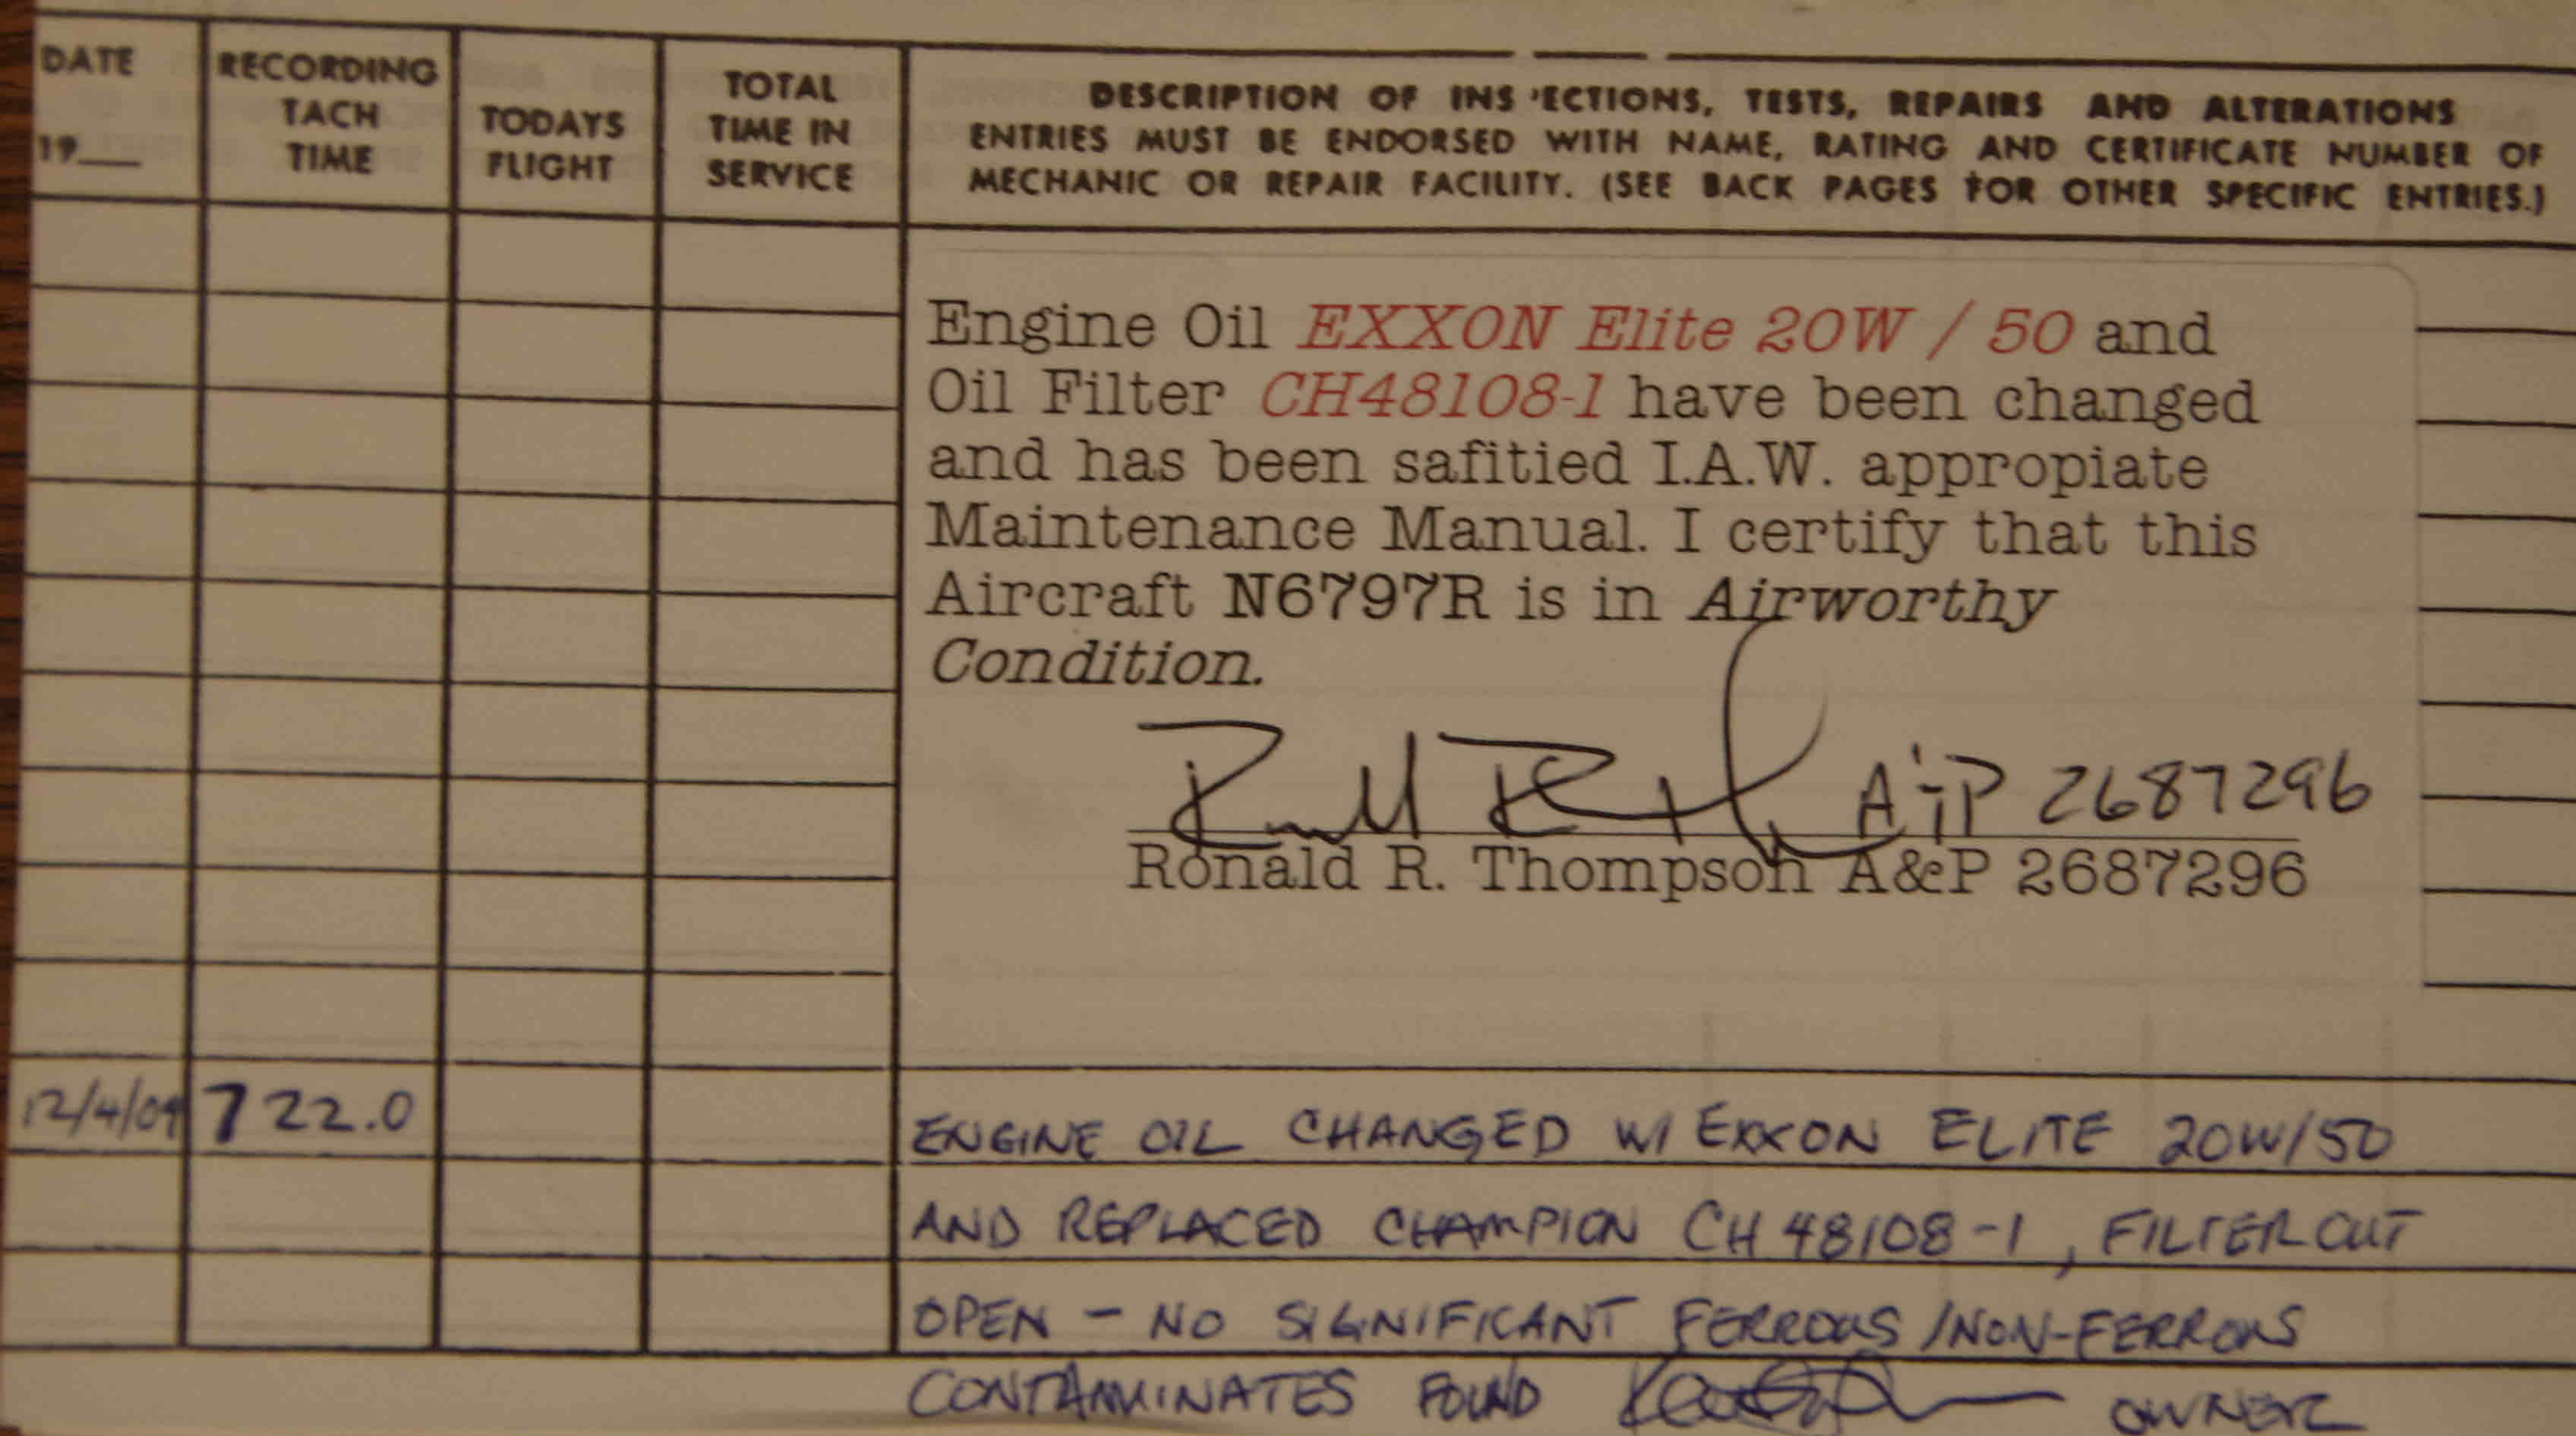 DATE
19___
RECORDING
TACH
TIME
TODAYS
FLIGHT
TOTAL
TIME IN
SERVICE
DESCRIPTION OF INS'ECTIONS, TESTS, REPAIRS AND ALTERATIONS
ENTRIES MUST BE ENDORSED WITH NAME, RATING AND CERTIFICATE NUMBER OF
MECHANIC OR REPAIR FACILITY. (SEE BACK PAGES FOR OTHER SPECIFIC ENTRIES.)
Engine Oil EXXON Elite 20W / 50 and
Oil Filter CH48108-1 have been changed
and has been safitied I.A.W. appropiate
Maintenance Manual. I certify that this
Aircraft N6797R is in Airworthy
Condition.
A&P 2687296
Ronald R. Thompson A&P 2687296
12/4/09 722.0 ENGINE OIL CHANGED W/ EXXON ELITE 20W/50
AND REPLACED CHAMPION CH 48108-1, FILTER CUT
OPEN - NO SIGNIFICANT FERROUS /NON-FERROUS
CONTAMINATES FOUND OWNER